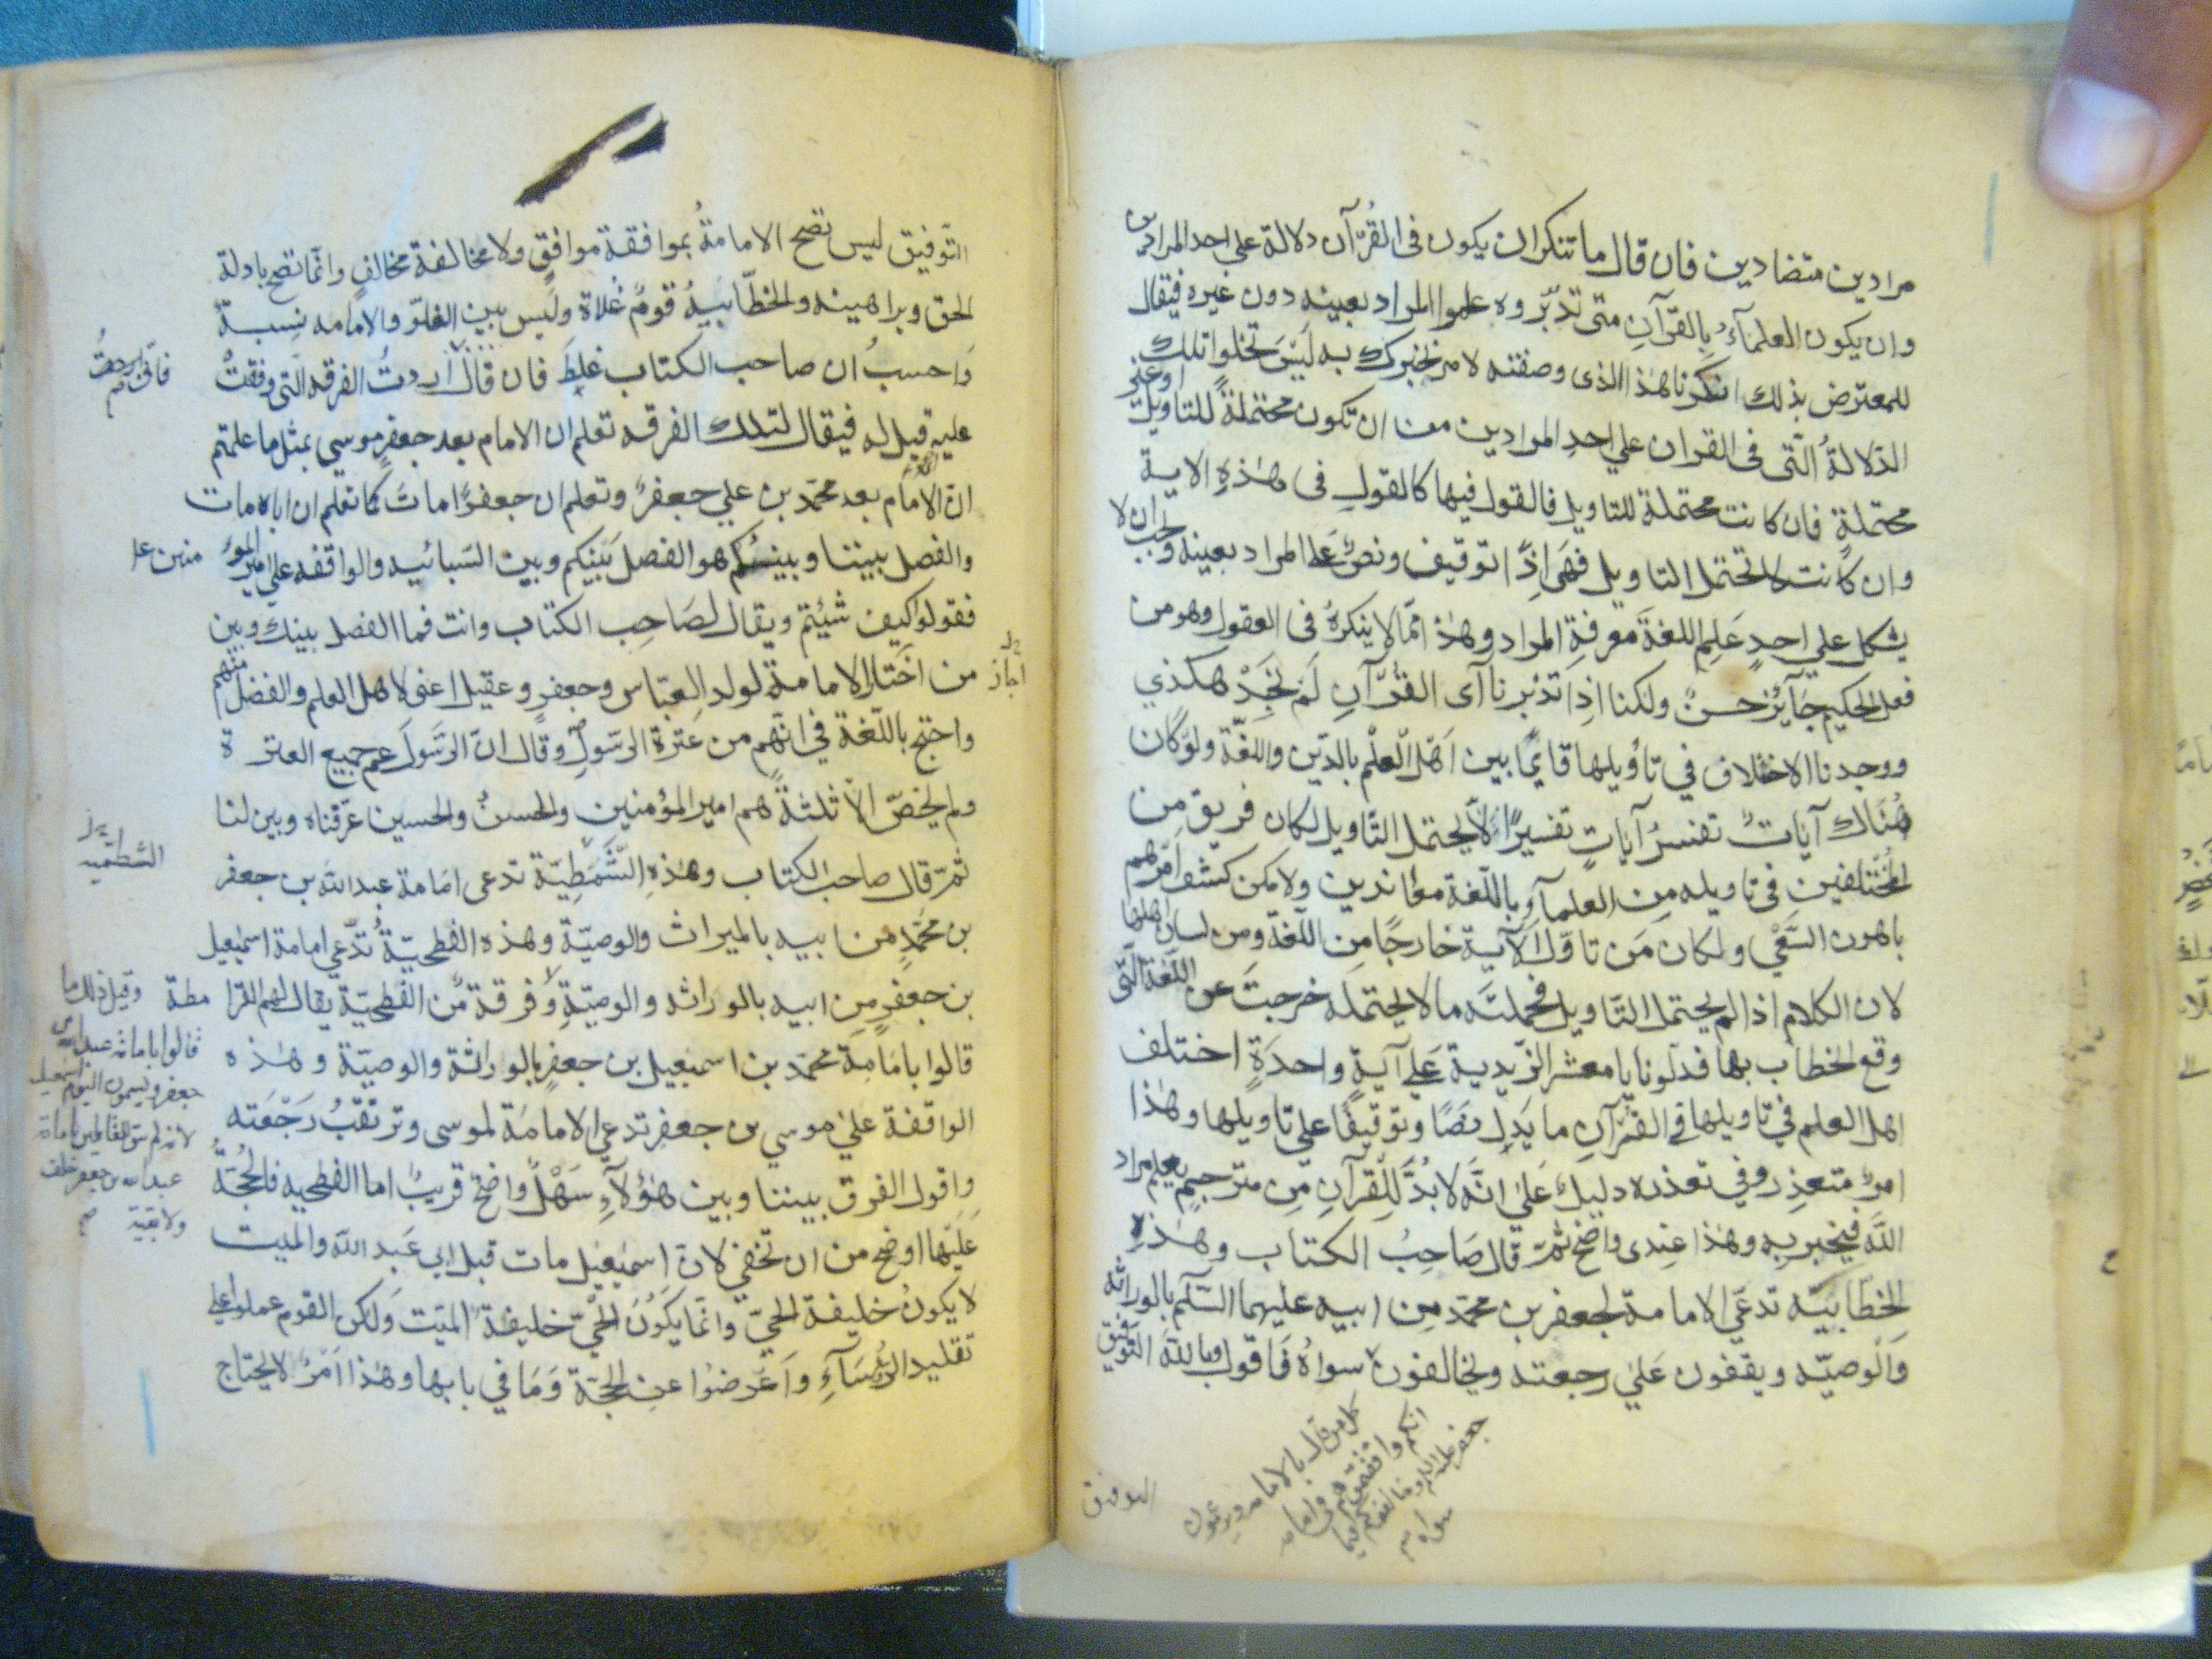 مرادين متضادين فان قال ما تنكر ان يكون فى القُرآن دلالة على احد المرادين
وان يكون العلمآءُ بِالقرآنِ متى تدبّروه علموا المراد بعينه دون غيره فيقال
للمعترض بذلك انكرنا هذا الذى وصفته لامر نخبرك به ليسَ تخلوا تلك
الدّلالةُ الّتى فى القران على احدِ المرادين من ان تكون محتملةً للتاويل او غير
محتملةٍ فان كانت محتملة للتاويل فالقول فيها كالقولِ فى هٰذهِ الاية
وان كانت لا تحتمل التاويل فهىَ اذًا توقيف ونصٌ علَى المراد بعينه وجب ان لا
يشكل على احدٍ عَلِم اللغةَ معرفةِ المراد وهٰذا ممّا لا ينكرهُ فى العقول وهو من
فعل الحكيم جَآيزٌ حسنٌ ولكنا اذِا تدبرنا آى القُرآنِ لَم نجَدْ هكذي
ووجدنا الاختلاف في تأويلها قايمًا بين اَهْلِ الْعِلْم بالدّين واللغَّة ولو كان
هُنَاك آياتٌ تفسرُ آياتٍ تفسيرًا لاَ يحتمل التّاويل لكان فريق من
المُختلفين فى تاويله مِن العلمآءِ باللّغة معاندين ولامكن كشف اَمرِهم
باهون السَّعْي ولكان مَن تاوّل الآية خارجًا من اللّغة ومن لسان اهلها
لان الكلام اذا لم يحتمل التّاويل فحملتَه مالا يحتمله خرجتَ عن اللّغة الّتى
وقع الخطاب بها فدلّونا يا معشر الزّيدية عَلى آيةٍ واحدَةٍ اختلف
اهل العلم في تاويلها فى القُرآنِ ما يَدِل نصًا وتوقيفًا على تاويلها وهٰذا
امرٌ متعذِر وفي تعذره دليلٌ عَلىٰ انّه لابُدَّ لِلْقرآنِ مِن مترجمٍ يعلم مراد
اللَّه فيخبر به وهٰذا عِندى واضح ثمّ قال صَاحِبُ الكتاب وهٰذهِ
الخطّابيّه تدعّي الامامة لجعفر بن محمّد مِن ابيه عليهما السّلم بالوراثه
وَالْوصيّه ويقفون عَلىٰ رجعته ويخالفون سواهُ فَاقول وبالله التّوفيق
كل من قال بالامامه ويزعمون
انكم وافقتموهم فى امامه
جعفر عليه السلم وخالفتموهم فيما
سواه
التوفيق
التّوفيق ليس تصح الامامةُ بموافقة موافقٍ ولا مخالفة مخالفٍ وانّما تصح بادلة
الحق وبراهينه والخطّابيهُ قومٌ غُلاة وليس بين الغلوّ والامامه نِسبة
وَاحسبُ ان صاحب الكتاب غلِطَ فان قال اردتُ الفرقه الّتى وقفتْ
فانى اردتُ
عليه قيل له فيقال لتلك الفرقه تعلم ان الامام بعد جعفرٍ موسي بمثل ما علمتم
انّ الامام بعد محمّد بن علي جعفرٌ وتعلم ان جعفرًا ماتَ كما تعلم ان اباه مات
والفصل بيننا وبينكم هو الفصل بَيْنكم وبين السَبائيه والواقفه على امير المؤ
منين
فقولوا كيف شئتم ويقال لصَاحِب الكتاب وانت فما الفصل بينك وبين
من اختار الامامة لولد العبّاس وجعفرٍ وعقيل اعنى لاهل العلم والفضل منهم
اجاز
واحتج باللّغة في انّهم من عترة الرسّولِ وقال انّ الرسَّولَ عم جميع العترة
ولم يخصّ الاّ ثلثةً هم امير المؤمنين والحسنُ والحسين عرّفناه وبين لنا
ثمّ قال صاحب الكتاب وهٰذهِ الشّمَطِيّة تدعى امَامة عبد الله بن جعفر
الشمطيه
بن محمّدٍ من ابيه بالميراث والوصيّة وهذه الفطحيّةُ تدّعي امامة اسمٰعيل
بن جعفرٍ من ابيه بالوراثه والوصيّةِ وفرقة من الفَطحيّة يقال لهم القرا
مطة
قالوا بامَامَة محمّد بن اسمٰعيل بن جعفرٍ بالوراثة والوصيّة وهٰذه
الواقفة علىٰ موسي بن جعفرٍ تدعى الامامَة لموسى وترتقبُ رَجْعَته
واقول الفرق بيننا وبين هٰؤلاءِ سَهْلٌ واضح قريبٌ اما الفطحيه فالحُجّةُ
عَليْها اوضح من ان تخفي لانّ اسمٰعيل مات قبل ابي عَبد اللّه والميت
لا يكونُ خليفة الحىّ وانّما يكَونُ الحْىّ خليفة الميّت وَلكن القوم عملوا على
تقليد الرؤسَآءِ واَعَرضوُا عن الحجّة وَمَا في بابها وهٰذا اَمرٌ لا يحتاج
وقيل ذلك ما
قالوا بامامة عبد الله بن
جعفر ويسمون اليوم اسمعيليه
لانه لم يبق للقائلين بامامة
عبد الله بن جعفر خلف
ولا بقية